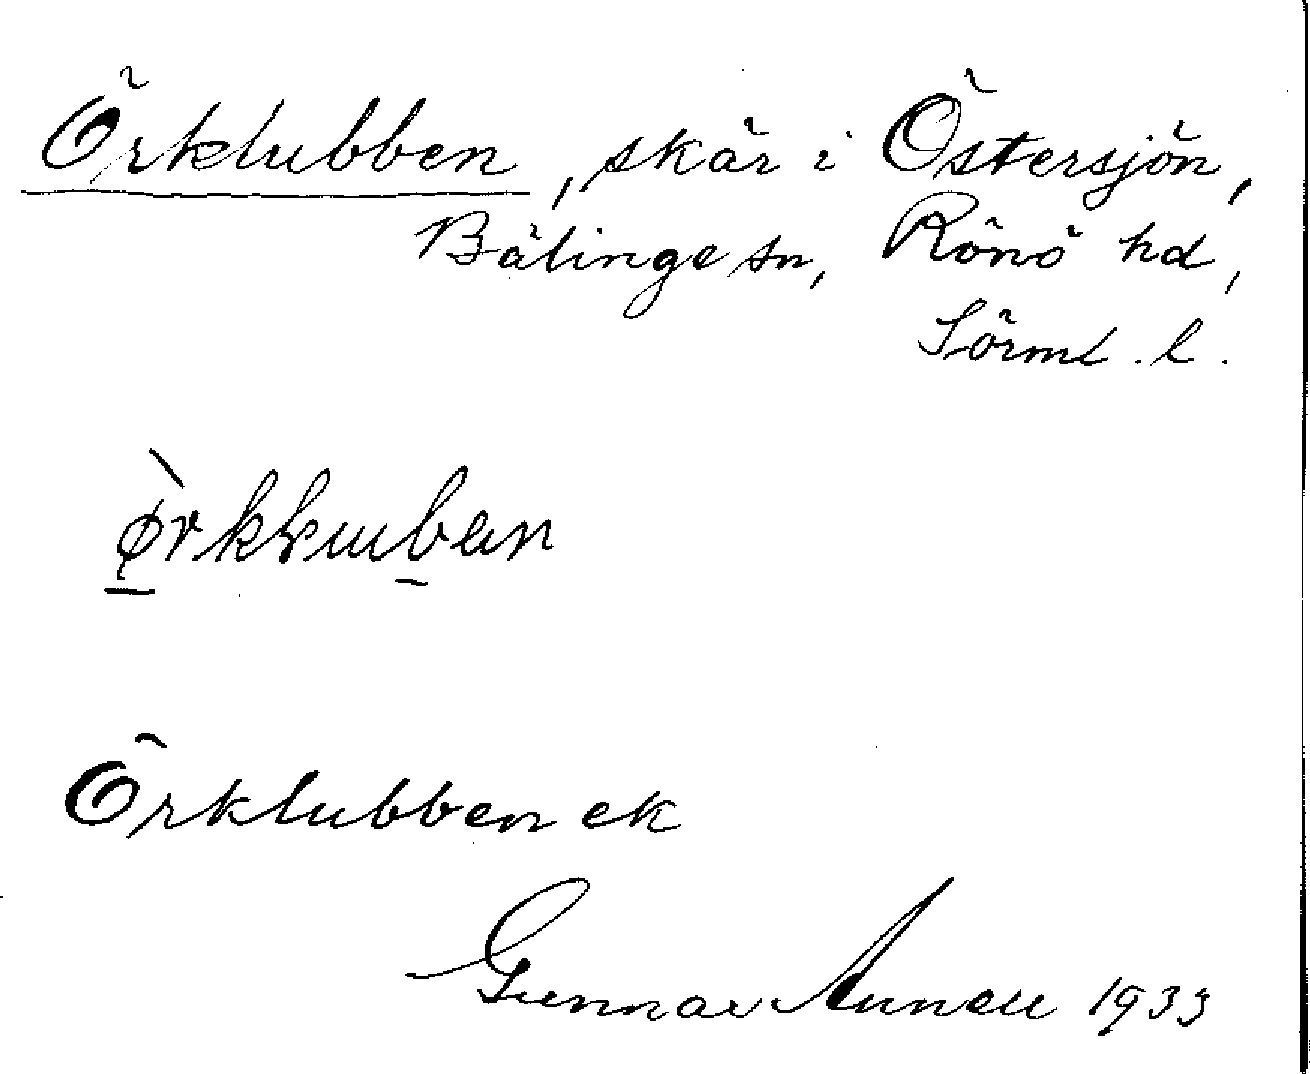 Örklubben, skär i Östersjön,
Bälinge sn, Rönö hd,
Sörml. l.
Örklubben ek
Gunnar Annell 1933